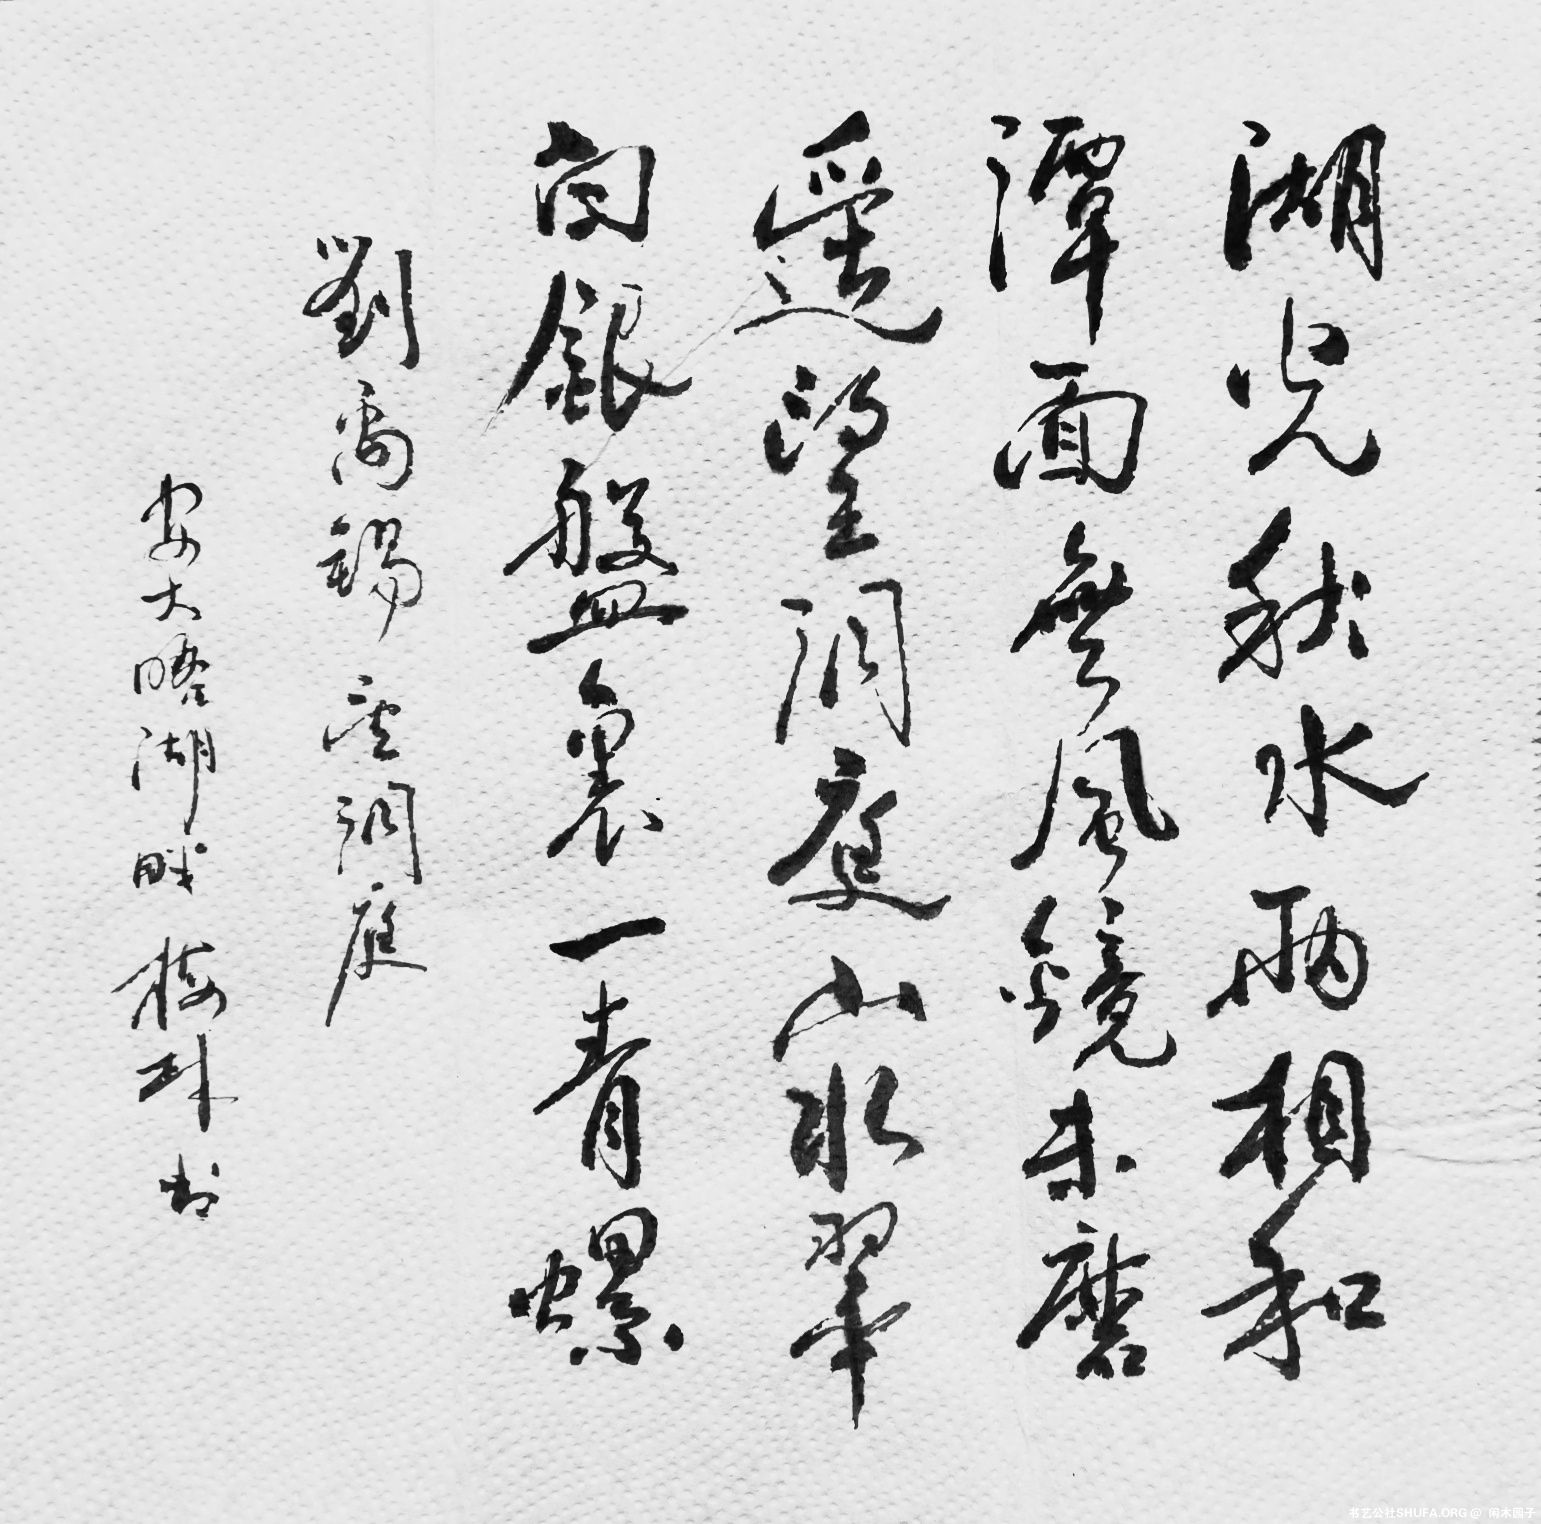 湖光秋水兩相和
潭面無風鏡未磨
遙望洞庭山水翠
白銀盤裏一青螺
劉禹錫 望洞庭
安大晤湖畔 梅 书
书艺公社SHUFA.ORG @ 闲木园子